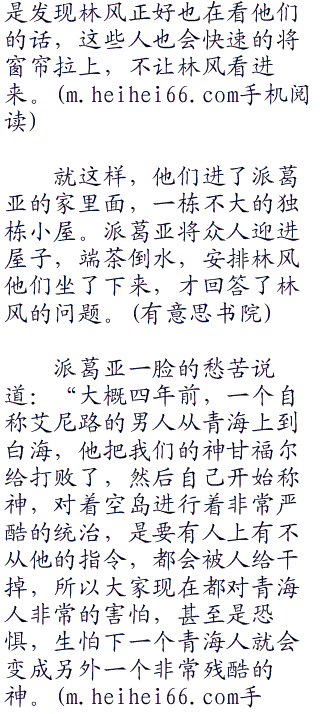 是发现林风正好也在看他们
的话，这些人也会快速的将
窗帘拉上，不让林风看进
来。(m.heihei66.com手机阅
读)
就这样，他们进了派葛
亚的家里面，一栋不大的独
栋小屋。派葛亚将众人迎进
屋子，端茶倒水，安排林风
他们坐了下来，才回答了林
风的问题。(有意思书院)
派葛亚一脸的愁苦说
道：“大概四年前，一个自
称艾尼路的男人从青海上到
白海，他把我们的神甘福尔
给打败了，然后自己开始称
神，对着空岛进行着非常严
酷的统治，是要有人上有不
从他的指令，都会被人给干
掉，所以大家现在都对青海
人非常的害怕，甚至是恐
惧，生怕下一个青海人就会
变成另外一个非常残酷的
神。(m.heihei66.com手